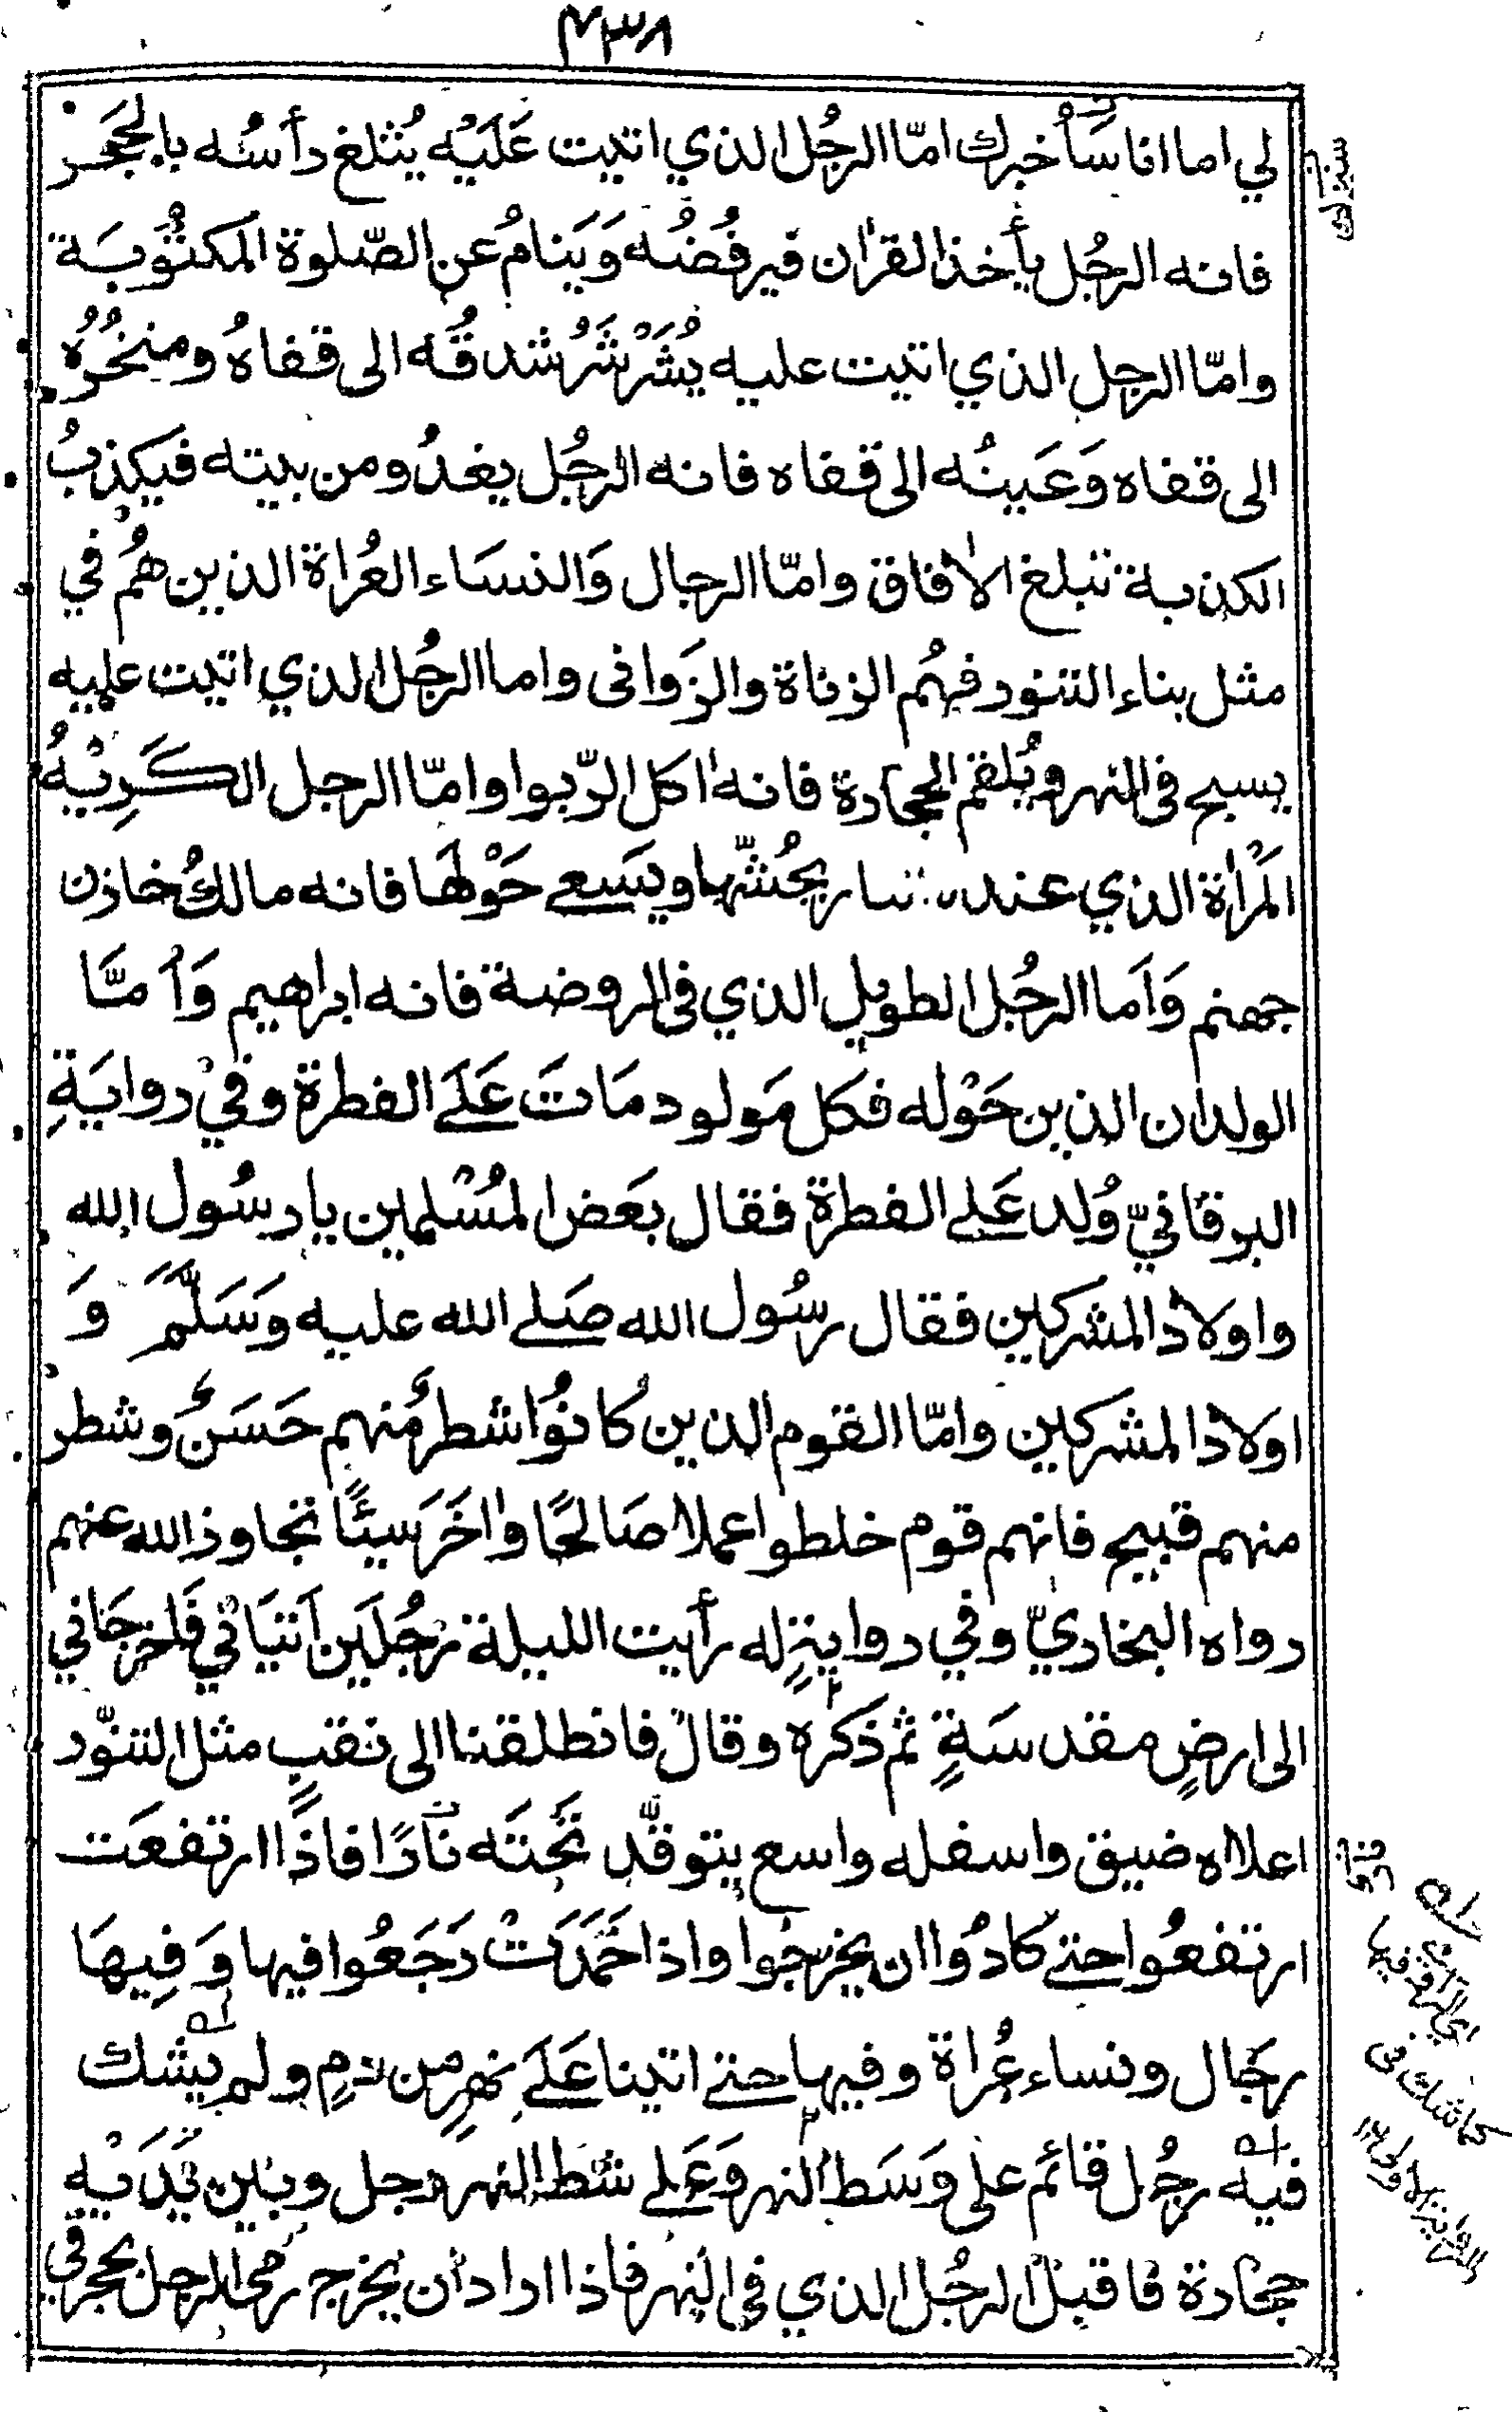 ٤٣٨
لي اما انا سَأُخبرك امّا الرجُل الذي اتيت عَلَيْه يُثلغ رأسُه بالحَجَر
فانه الرجُل يأخذ القرٰان فيرفُضُه وَيَنامُ عن الصّلوة المكتُوبَة
وامّا الرجل الذي اتيت عليه يُشَرْشَرُ شدقُه الى قفاهُ ومنخُرُه
الى قفاه وَعَينُه الى قفاه فانه الرجُل يغدُو من بيته فيكذبُ
الكذبة تبلغ الاٰفاق وامّا الرجال وَالنسَاء العُراة الذين هُمْ في
مثل بناء التنور فهُم الزناة والزَواني واما الرجُل الذي اتيت عليه
يسبح في النهر ويُلقم الحجارة فانه اٰكل الرّبوا وامّا الرجل الكَرِيْهُ
المَرْاٰة الذي عنده نار يحُشّها ويَسعى حَوْلهَا فانه مالكٌ خازن
جهنم وَاَما الرجُل الطويل الذي في الروضة فانه ابراهيم وَاَمَّا
الولدان الذين حَوْله فكل مَولود مَاتَ عَلَى الفطرة وفيْ روايَةِ
البرقانيّ وُلد عَلى الفطرة فقال بَعَض المُسْلمين يا رسُول الله
واولادُ المشركين فقال رسُول الله صَلى الله عليه وَسَلَّمَ وَ
اولادُ المشركين وامّا القوم الذين كانُوا شطرٌ مّنهم حَسَنٌ وشطرٌ
منهم قبيح فانهم قوم خلطوا عملا صَالحًا واٰخَرَ سَيئًا تجاوز الله عنهم
رواه البخاريّ وفي روايةٍ له رأيت الليلة رجُلَين اَتيَاني فاَخرجَاني
الى ارضٍ مقدسَةٍ ثم ذكره وقال فانطلقنا الى نقبٍ مثل التنّور
اعلاه ضيق واسفله واسع يتوقّد تحَتَه نارًا فاذا ارتفعَت
ارتفعُوا حتى كادُوا ان يخرجوا واذا خَمَدَتْ رَجَعُوا فيها وَفِيهَا
رجَال ونساء عُراة وفيها حتى اتينا عَلَى نهرٍ من دمٍ ولم يشك
فيه رجُل قائم على وَسَط النهر وَعَلى شط النهر رجل وبين يَدَيْه
حجارة فاقبل الرجُل الذي في النهر فاذا اراد ان يخرج رمى الرجل بحجر في